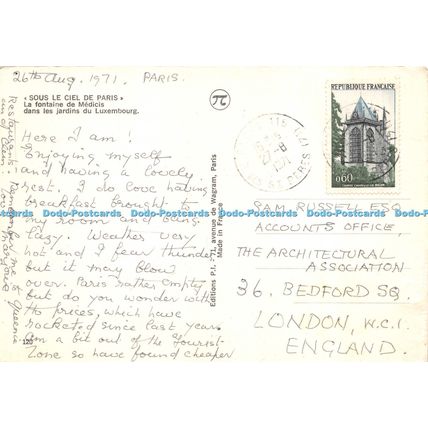 26th Aug. 1971. PARIS.
« SOUS LE CIEL DE PARIS »
La fontaine de Médicis
dans les jardins du Luxembourg.
Here I am!
Enjoying myself
and having a lovely
rest. I do love having
breakfast brought to
my room and being
lazy. Weather very
hot and I fear thunder
but it may blow
over. Paris rather empty
but do you wonder with
the prices, which have
rocketed since last year.
Am a bit out of the tourist-
zone so have found cheaper
Restaurant
120
Editions P.I. - 71, avenue de Wagram, Paris
Made in France
REPUBLIQUE FRANÇAISE
0,60
SAM. RUSSELL ESQ
ACCOUNTS OFFICE,
THE ARCHITECTURAL
ASSOCIATION
36. BEDFORD SQ.
LONDON, W.C.1.
ENGLAND.
Dodo-Postcards Dodo-Postcards Dodo-Postcards Dodo-Postcards Dodo-Postcards